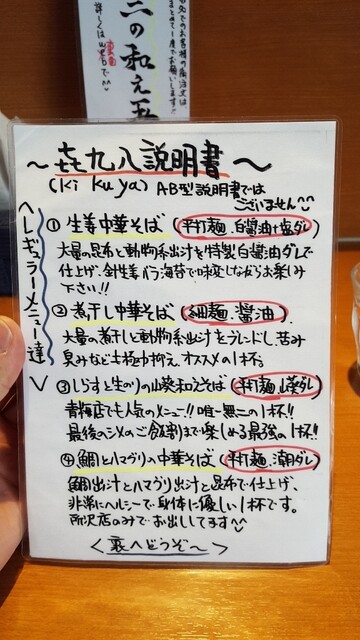 二の和え玉
詳しくはwebで
までのお客様の再注文は
まとめて1度でお願いします!!
～㐂九八説明書～
(Ki Ku ya) AB型説明書では
ございません^^
〈レギュラーメニュー達〉
① 生姜中華そば (平打麺、白醤油+塩ダレ)
大量の昆布と動物系出汁を特製白醤油ダレで
仕上げ、針生姜、バラ海苔で味変しながらお楽しみ
下さい!!
② 煮干し中華そば (細麺、醤油)
大量の煮干しと動物系出汁をブレンドし、苦み
臭みなど極力抑え、オススメの1杯。
③ しらすと生のりの山葵和えそば (平打麺、山葵ダレ)
青梅店でも人気のメニュー!! 唯一無二の1杯!!
最後のシメのご飯割りまで楽しめる最強の1杯!!
④ 鯛とハマグリの中華そば (平打麺、潮ダレ)
鯛出汁とハマグリ出汁と昆布で仕上げ、
非常にヘルシーで身体に優しい1杯です。
所沢店のみでお出ししてます^^
＜裏へどうぞ～＞